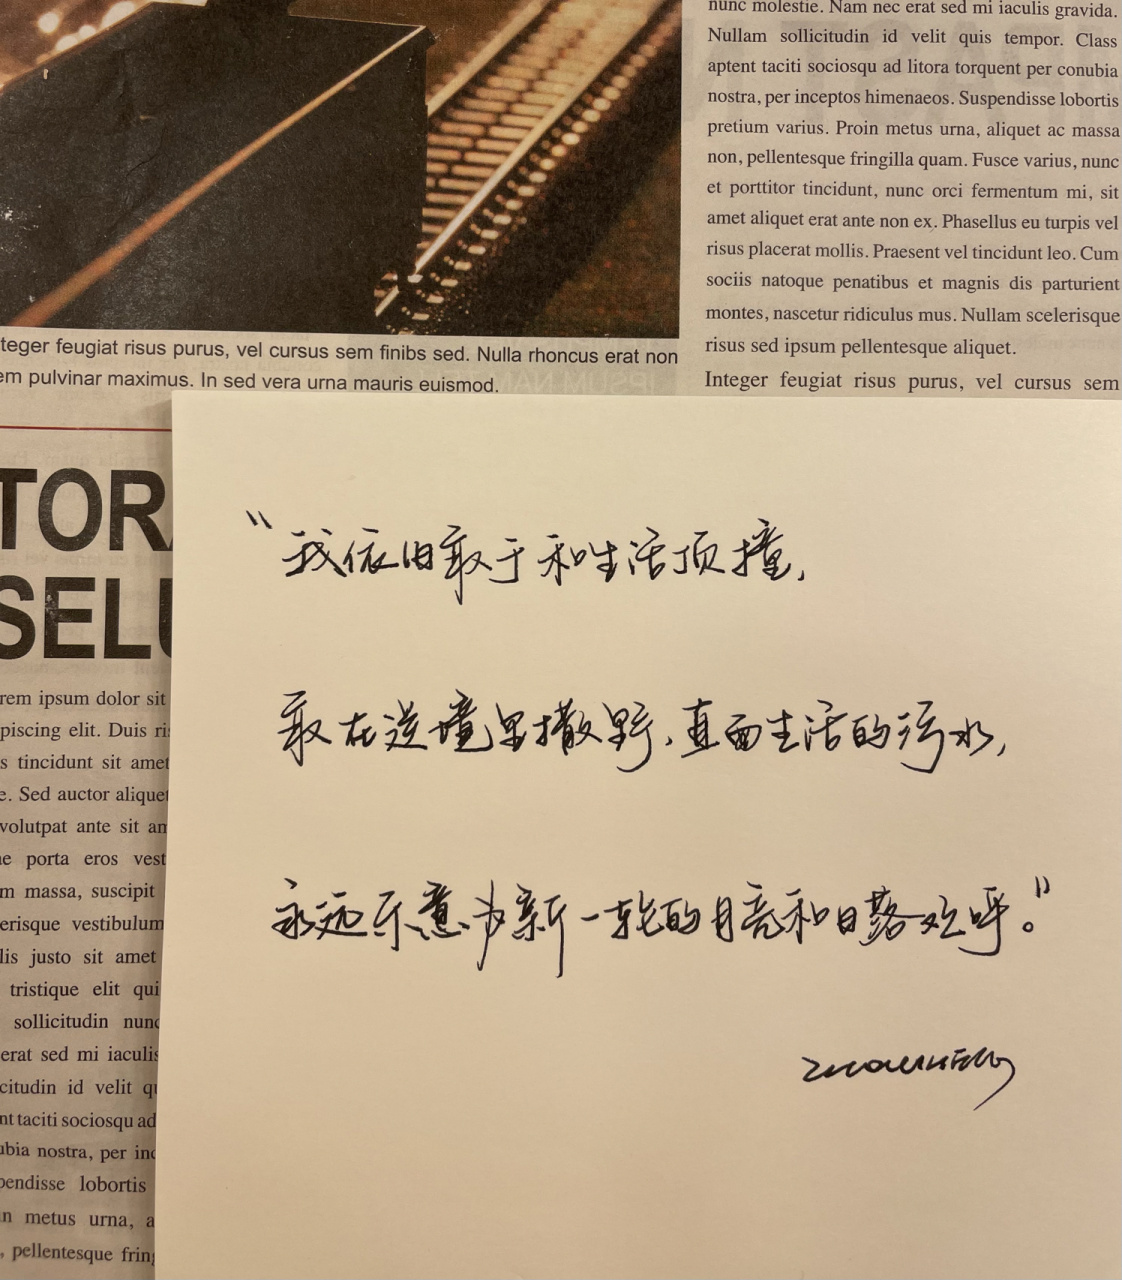 nunc molestie. Nam nec erat sed mi iaculis gravida.
Nullam sollicitudin id velit quis tempor. Class
aptent taciti sociosqu ad litora torquent per conubia
nostra, per inceptos himenaeos. Suspendisse lobortis
pretium varius. Proin metus urna, aliquet ac massa
non, pellentesque fringilla quam. Fusce varius, nunc
et porttitor tincidunt, nunc orci fermentum mi, sit
amet aliquet erat ante non ex. Phasellus eu turpis vel
risus placerat mollis. Praesent vel tincidunt leo. Cum
sociis natoque penatibus et magnis dis parturient
montes, nascetur ridiculus mus. Nullam scelerisque
risus sed ipsum pellentesque aliquet.
Integer feugiat risus purus, vel cursus sem
teger feugiat risus purus, vel cursus sem finibs sed. Nulla rhoncus erat non
em pulvinar maximus. In sed vera urna mauris euismod.
TORA
SELU
rem ipsum dolor sit
piscing elit. Duis ri
s tincidunt sit amet
e. Sed auctor aliquet
volutpat ante sit am
ne porta eros vest
m massa, suscipit
erisque vestibulum
lis justo sit amet
tristique elit qui
sollicitudin nunc
erat sed mi iaculis
citudin id velit qu
nt taciti sociosqu ad
ubia nostra, per inc
pendisse lobortis
n metus urna, a
, pellentesque fring
“我依旧敢于和生活顶撞,
敢在逆境里撒野,直面生活的污水,
永远乐意为新一轮的月亮和日落欢呼。”